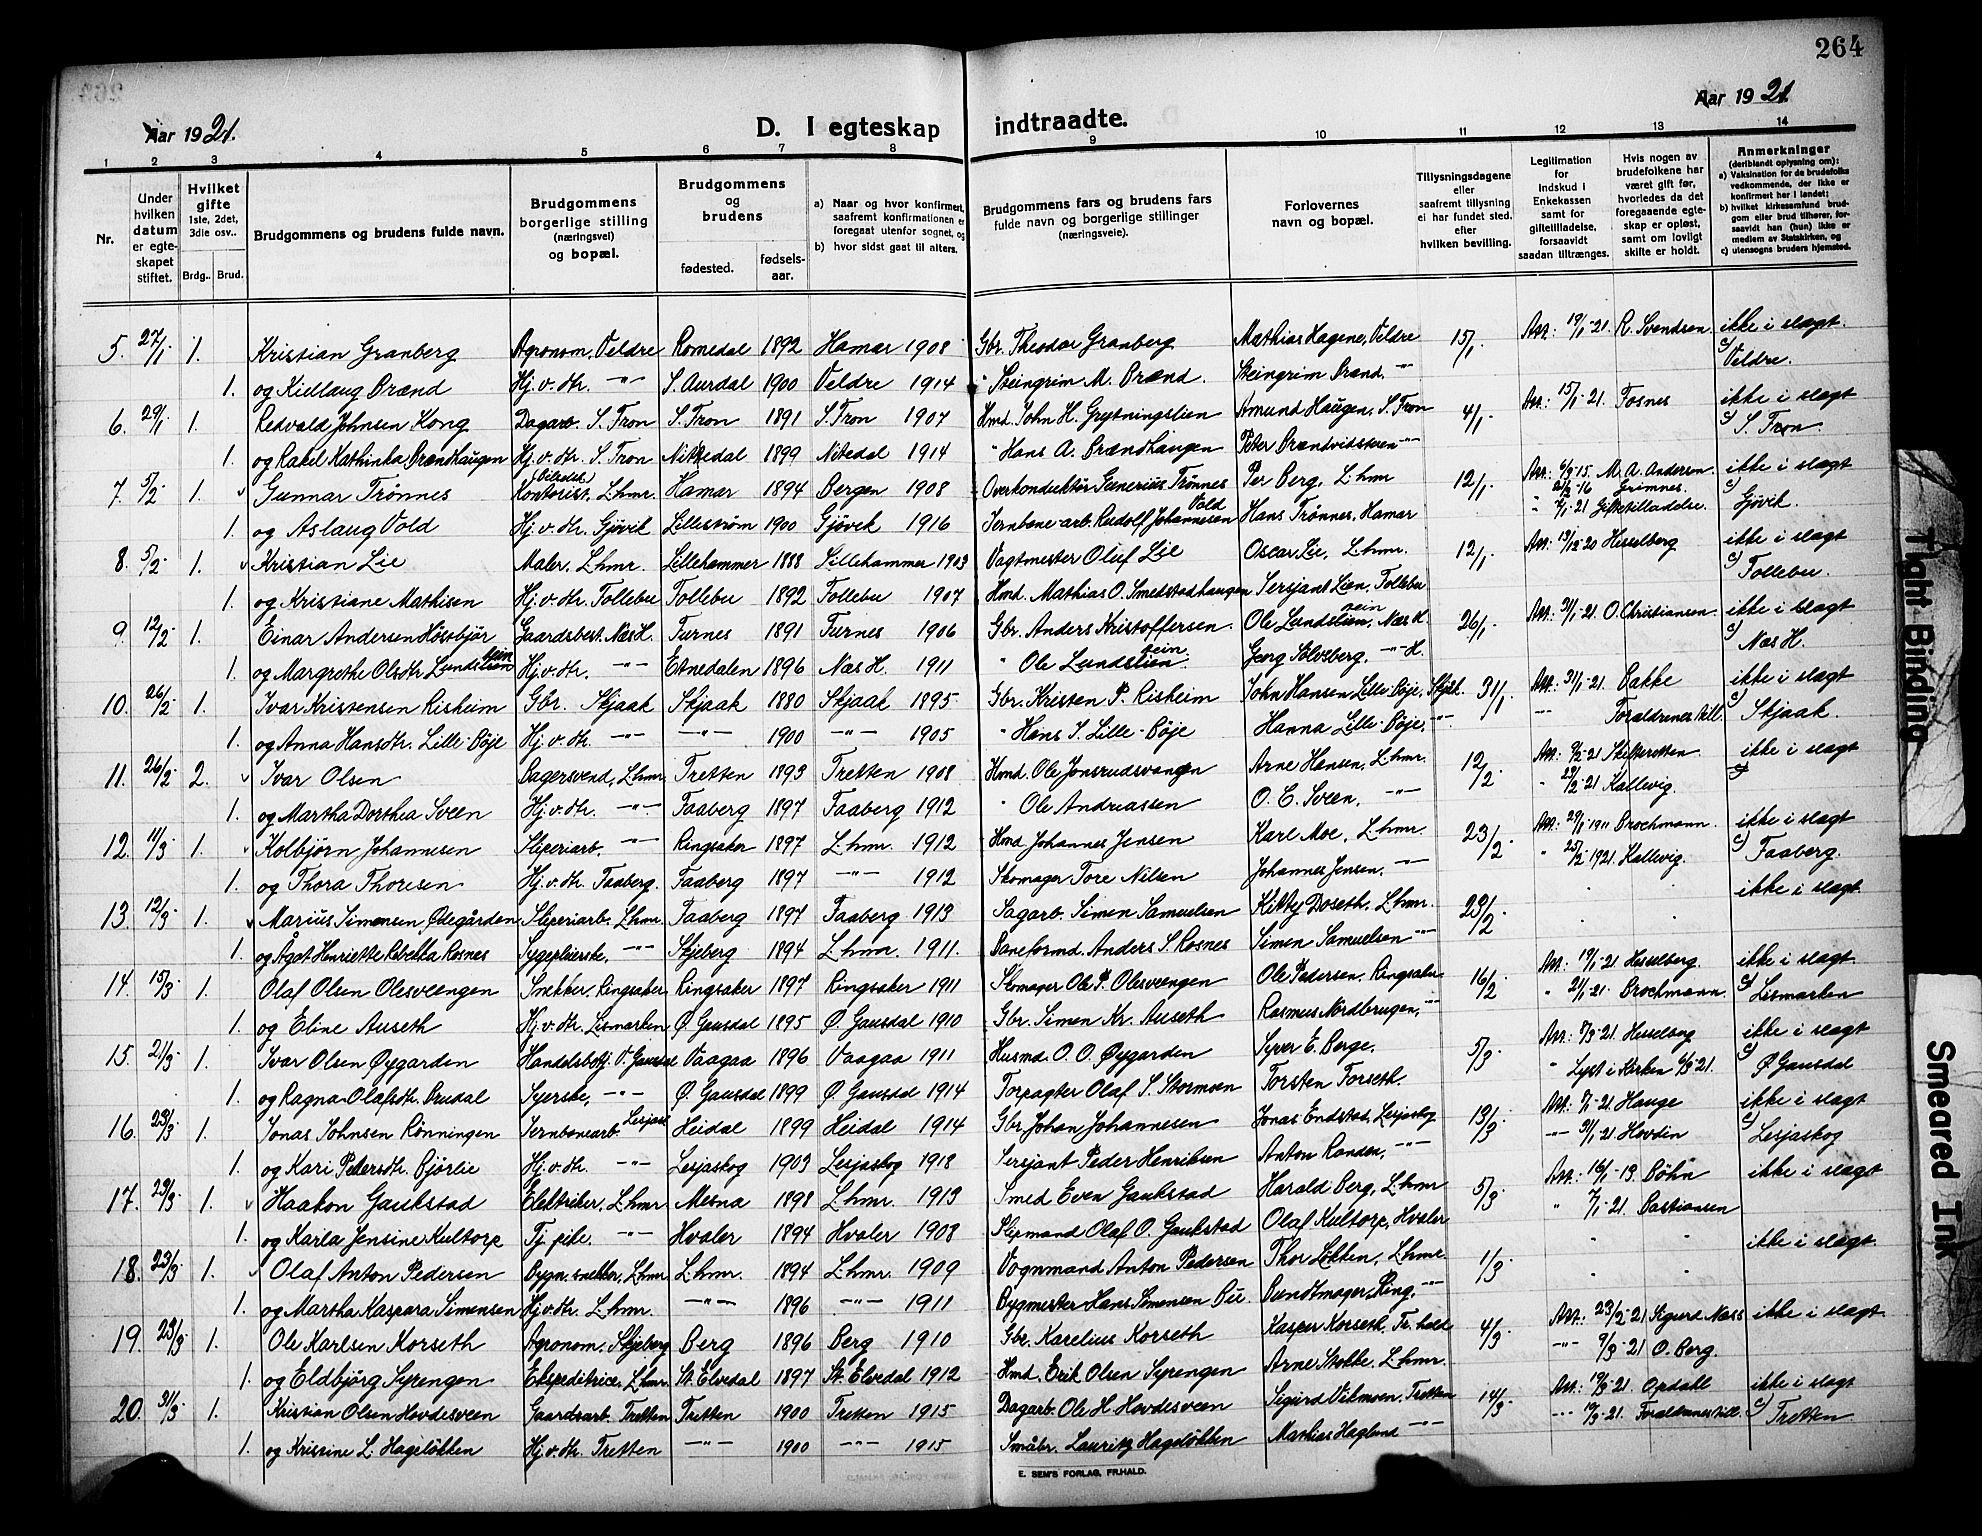 264
Aar 1921.
D. I egteskap indtraadte.
Aar 1921
1 2 3 4 5 6 7 8 9 10 11 12 13 14
Nr.
Under hvilken datum er egteskapet stiftet.
Hvilket gifte 1ste, 2det, 3die osv..
Brdg.. Brud.
Brudgommens og brudens fulde navn.
Brudgommens borgerlige stilling (næringsvei) og bopæl.
Brudgommens og brudens
fødested. fødselsaar.
a) Naar og hvor konfirmert, saafremt konfirmationen er foregaat utenfor sognet, og
b) hvor sidst gaat til alters.
Brudgommens fars og brudens fars fulde navn og borgerlige stillinger (næringsveie).
Forlovernes navn og bopæl.
Tillysningsdagene eller saafremt tillysning ei har fundet sted, efter hvilken bevilling.
Legitimation for indskud i Enkekassen samt for giftetilladelse, forsaavidt saadan tiltrænges.
Hvis nogen av brudefolkene har været gift før, hvorledes da det foregaaende egteskap er opløst, samt om lovligt skifte er holdt.
Anmerkninger (deriblandt oplysning om): a) Vaksination for de brudefolks vedkommende, der ikke er konfirmert her i landet; b) hvilket kirkesamfund brudgom eller brud tilhører, forsaavidt han (hun) ikke er medlem av Statskirken, og c) utensogns bruders hjemsted.
5. 27/1 1. Kristian Granberg Agronom, Veldre Romedal 1892 Hamar 1908 Gbr. Theodor Granberg Mathias Hagene, Veldre 15/1. Att: 19/1-21. R. Svendsen ikke i slegt.
1. og Kidlaug Brænd Hj.v.dtr. -"- S. Aurdal 1900 Veldre 1914 " Steingrim M. Brænd. Steingrim Brænd. -"- c) Veldre.
6. 29/1 1. Redvald Johnsen Kong Dagarb. S. Fron S. Fron 1891 S. Fron 1907 Hmd. John H. Grytningslien Amund Haugen, S. Fron 4/1. Att: 15/1-21. Fosnes ikke i slegt
1. og Rakel Kathinka Brændhaugen Hj.v.dtr. S. Fron Nittedal 1899 Nitedal 1914 " Hans A. Brændhaugen Peter Brændvidsteen -"- c) S. Fron
7. 5/2 1. Gunnar Trønnes Kontorist, Lhmr. Hamar 1894 Bergen 1908 Overkonduktør Senerius Trønnes Per Berg, Lhmr 12/1. M. A. Andersen Grimnes. ikke i slegt
1. og Aslaug Vold Hj.v.dtr. Gjøvik Lillestrøm 1900 Gjøvik 1916 Jernbane-arb. Rudolf Johannesen Vold Hans Trønnes, Hamar Giftetilladelse. c) Gjøvik.
8. 5/2 1. Kristian Lie Maler, Lhmr. Lillehammer 1888 Lillehammer 1903 Vagtmester Oluf Lie Oscar Lie, Lhmr. 12/1. Att: 13/12-20 Hesselberg ikke i slegt
1. og Kristiane Mathisen Hj.v.dtr. Follebu Follebu 1892 Follebu 1907 Hmd. Mathias O. Smedstadhaugen Sersjant Lien, Follebu c) Follebu.
9. 12/2 1. Einar Andersen Høsbjør Gaardsbest. Næs H. Furnes 1891 Furnes 1906 Gbr. Anders Kristoffersen Ole Lundstein, Næs H. 26/1. Att: 31/1-21. O. Christiansen ikke i slegt
1. og Margrethe Olsdtr. Lundstein Hj.v.dtr. -"- Etnedalen 1896 Næs H. 1911 " Ole Lundstein Georg Sølvsberg, -"- H. c) Næs H.
10. 26/2 1. Ivar Kristensen Risheim Gbr. Skjaak Skjaak 1880 Skjaak 1895 Gbr. Kristen P. Risheim John Hansen Lille-Bøje, Skjåk 31/1. Att: 31/1-21. Bakke ikke i slegt
1. og Anna Hansdtr. Lille-Bøje Hj.v.dtr. -"- -"- 1900 -"- 1905 " Hans J. Lille-Bøje Hanna Lille-Bøje, -"- -"- Forældrenes till. c) Skjaak.
11. 26/2 2. Ivar Olsen Bagersvend, Lhmr. Tretten 1893 Tretten 1908 Hmd. Ole Jonsrudsvangen Arne Hansen, Lhmr. 12/2. Skifteretten ikke i slegt
1. og Martha Dorthea Sveen Hj.v.dtr. -"- Faaberg 1897 Faaberg 1912 " Ole Andreassen O. E. Sveen, -"- Kallevig.
12. 11/3 1. Kolbjørn Johannesen Sliperiarb. -"- Ringsaker 1897 Lhmr. 1912 Hmd Johannes Jensen Karl Moe, Lhmr 23/2. Brochmann. ikke i slegt
1. og Thora Thoresen Hj.v.dtr. Faaberg. Faaberg 1897 -"- 1912 Skomager Tore Nilsen Johannes Jensen, -"- " 25/2 1921. Kallevig. c) Faaberg.
13. 12/3 1. Marius Simensen Ødegården Sliperiarb. Lhmr. Faaberg 1897 Faaberg 1913 Sagarb. Simen Samuelsen Kitty Doseth, Lhmr. 23/2. ikke i slegt.
1. og Ågot Henriette Rebekka Rosnes Sygepleierske, -"- Skjeberg 1894 Lhmr. 1911. Baneformd. Anders S. Rosnes Simen Samuelsen -"-
14. 15/3 1. Olaf Olsen Olesveengen Snekker, Ringsaker Ringsaker 1897 Ringsaker 1911 Skomager Ole P. Olesveengen Ole Pedersen, Ringsaker 16/2. Att: 19/1-21 Hesselberg. ikke i slegt
1. og Eline Auseth Hj.v.dtr. Lismarken Ø. Gausdal 1895 Ø. Gausdal 1910 Gbr. Simen Kr. Auseth Rasmus Nordbrugen, -"- " 21/1-21. Brochmann. c) Lismarken
15. 21/3 1. Ivar Olsen Øygarden Handelsbetj. V. Gausdal Vaagaa 1896 Vaagaa 1911 Husmd. O. O. Øygarden Syver E. Berge. 5/3. Att: 8/3-21. Hesselberg ikke i slegt
1. og Ragna Olafsdtr. Brudal Syerske, Ø. Gausdal 1899 Ø. Gausdal 1914 Forpagter Olaf S. Stormoen Torsten Forseth. " Lyst i Kirken 6/3-21. c) Ø. Gausdal
16. 23/3 1. Jonas Johnsen Rønningen Jernbanearb. Lesjask. Heidal 1899 Heidal 1914 Gbr. Johan Johannesen Jonas Endstad, Lesjaskog 13/3. Hauge ikke i slegt
1. og Kari Pedersdtr. Bjørlie Hj.v.dtr. -"- Lesjaskog 1903 Lesjaskog 1918 Sersjant Peder Henriksen Anton Randen, -"- Hovdin c) Lesjaskog
17. 23/3 1. Haakon Gaukstad Elektriker, Lhmr Mesna 1898 Lhmr. 1913 Smed Even Gaukstad Harald Berg, Lhmr 5/3. Att: 16/1-19. Bøhn ikke i slegt
1. og Karla Jensine Kultorp Tj.pike. -"- Hvaler 1894 Hvaler 1908 Slipmand Olaf O. Gaukstad Olaf Kultorp, Hvaler " 7/1-21. Bastiansen
18. 23/3 1. Olaf Anton Pedersen Bygn. snekker, Lhmr. Lhmr. 1894 Lhmr. 1909 Vognmand Anton Pedersen Thor Løkken, Lhmr 1/3. ikke i slegt.
1. og Martha Kaspara Simensen Hj.v.dtr. Lhmr. -"- 1896 -"- 1911 Bygmester Hans Simensen Bu Buntmager Ring, -"-
19. 23/3 1. Ole Karlsen Korseth Agronom, Skjeberg Berg 1896 Berg 1910 Gbr. Karelius Korseth Kasper Korseth, Fr.hald 4/3. Att: 23/2-21 Sigurd Næss ikke i slegt.
1. og Eldbjørg Syrengen Ekspeditrice, Lhmr. St. Elvedal 1897 St. Elvedal 1912 Hmd. Erik Olsen Syrengen Arne Stokke, Lhmr. -"- 9/3-21 O. Berg.
20. 31/3 1. Kristian Olsen Hovdesveen Gaardsarb. Tretten Tretten 1900 Tretten 1915 Dagarb. Ole H. Hovdesveen Sigurd Vikmoen, Tretten 14/3. Att: 19/3-21. Opdahl ikke i slegt
1. og Kristine L. Hageløkken Hj.v.dtr. Tretten -"- 1900 -"- 1915 Småbr. Lauritz Hageløkken Mathias Hagland -"- -"- 19/3-21. Forældrenes till. c) Tretten
E. SEM'S FORLAG, FR.HALD.
Tight Binding
Smeared Ink